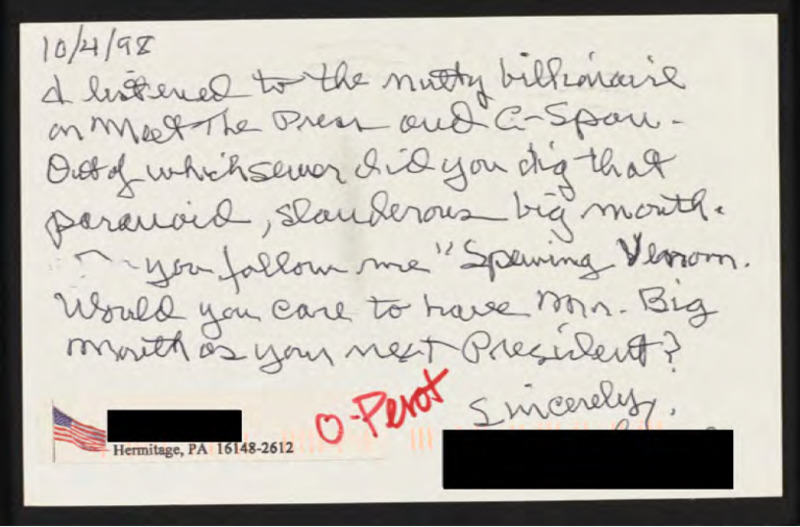 10/4/98
I listened to the nutty billionaire
on Meet The Press and C-Span-
Out of which sewer did you dig that
paranoid, slanderous big mouth.
you follow me" Spewing Venom.
Would you care to have Mr. Big
Mouth as your next President?
Sincerely,
O-Perot
Hermitage, PA 16148-2612